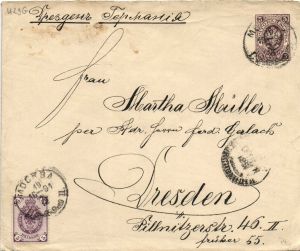 Дрезденъ Германiя
Frau
Martha Müller
per Adr. Herrn Ferd. Gerlach
Dresden
Pillnitzerstr. 46 II
früher 55.
МОСКВА